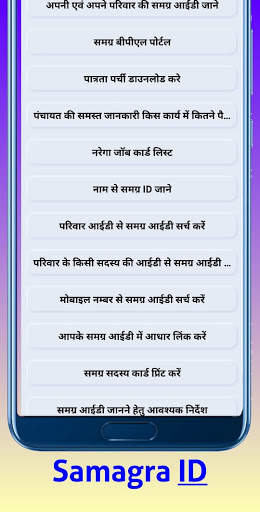 अपनी एवं अपने परिवार की समग्र आईडी जाने
समग्र बीपीएल पोर्टल
पात्रता पर्ची डाउनलोड करे
पंचायत की समस्त जानकारी किस कार्य में कितने पै...
नरेगा जॉब कार्ड लिस्ट
नाम से समग्र ID जाने
परिवार आईडी से समग्र आईडी सर्च करें
परिवार के किसी सदस्य की आईडी से समग्र आईडी ...
मोबाइल नम्बर से समग्र आईडी सर्च करें
आपके समग्र आईडी में आधार लिंक करें
समग्र सदस्य कार्ड प्रिंट करें
समग्र आईडी जानने हेतु आवश्यक निर्देश
Samagra ID